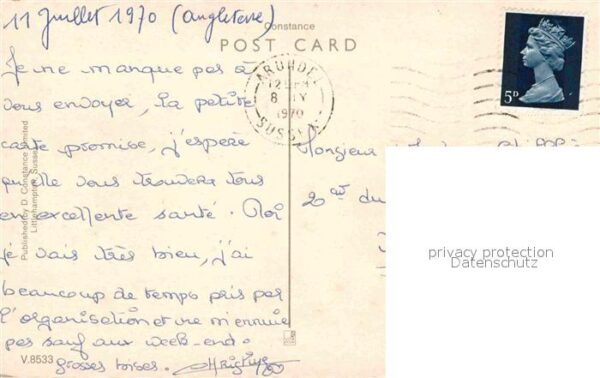 11 Juillet 1970 (Angleterre)
Constance
POST CARD
Je ne manque pas à
vous envoyer, la petite
carte promise, j'espère
qu'elle vous trouvera tous
en excellente santé. Moi
je vais très bien, j'ai
beaucoup de temps pris par
l'organisation et ne m'ennuie
pas sauf aux week-end.
grosses bises.
V.8533
Published by D. Constance Limited
Littlehampton, Sussex
ARUNDEL
1970
SUSSEX
5D
Monsieur
20 du
privacy protection
Datenschutz